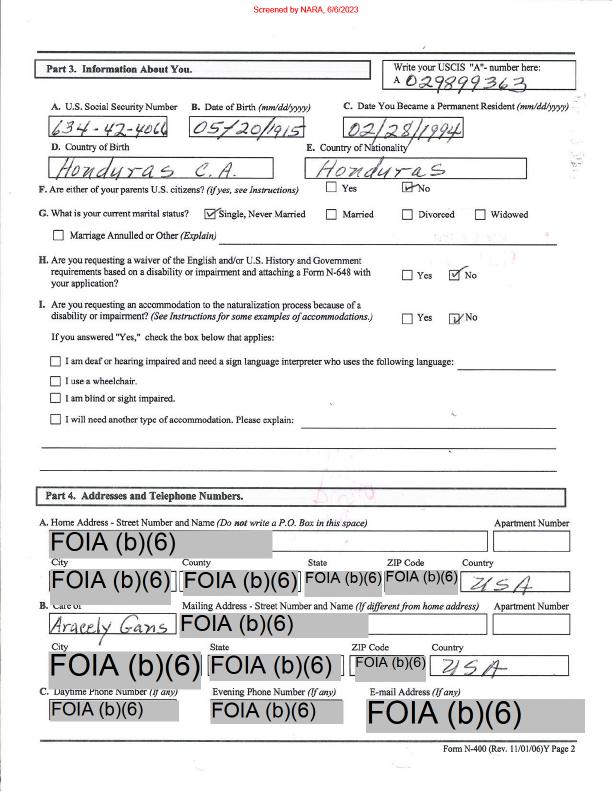 Screened by NARA, 6/6/2023
Part 3. Information About You.
Write your USCIS "A"- number here:
A 029899363
A. U.S. Social Security Number B. Date of Birth (mm/dd/yyyy) C. Date You Became a Permanent Resident (mm/dd/yyyy)
634-42-4066 05/20/1915 02/28/1994
D. Country of Birth E. Country of Nationality
Honduras C.A. Honduras
F. Are either of your parents U.S. citizens? (if yes, see Instructions) Yes No
G. What is your current marital status? Single, Never Married Married Divorced Widowed
Marriage Annulled or Other (Explain)
H. Are you requesting a waiver of the English and/or U.S. History and Government
requirements based on a disability or impairment and attaching a Form N-648 with Yes No
your application?
I. Are you requesting an accommodation to the naturalization process because of a
disability or impairment? (See Instructions for some examples of accommodations.) Yes No
If you answered "Yes," check the box below that applies:
I am deaf or hearing impaired and need a sign language interpreter who uses the following language:
I use a wheelchair.
I am blind or sight impaired.
I will need another type of accommodation. Please explain:
Part 4. Addresses and Telephone Numbers.
A. Home Address - Street Number and Name (Do not write a P.O. Box in this space) Apartment Number
FOIA (b)(6)
City County State ZIP Code Country
FOIA (b)(6) FOIA (b)(6) FOIA (b)(6) FOIA (b)(6) USA
B. Care of Mailing Address - Street Number and Name (If different from home address) Apartment Number
Aracely Gans FOIA (b)(6)
City State ZIP Code Country
FOIA (b)(6) FOIA (b)(6) FOIA (b)(6) USA
C. Daytime Phone Number (If any) Evening Phone Number (If any) E-mail Address (If any)
FOIA (b)(6) FOIA (b)(6) FOIA (b)(6)
Form N-400 (Rev. 11/01/06)Y Page 2